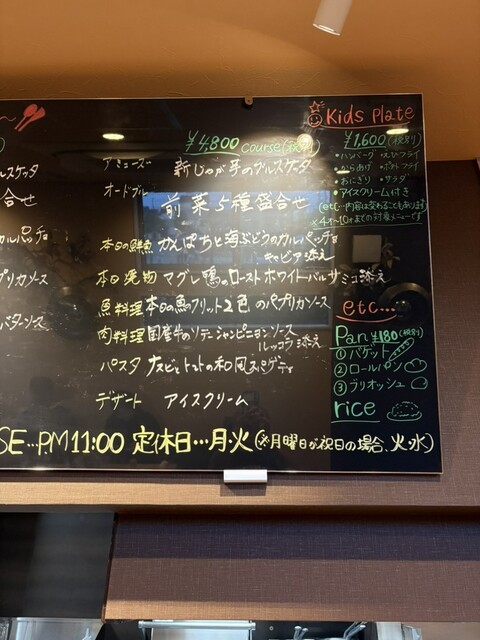 ルスケッタ
合せ
カルパッチョ
プリカソース
バターソース
¥4,800 course(税別)
アミューズ 新じゃが芋のブルスケッタ
オードブル 前菜5種盛合せ
本日の鮮魚 かんぱちと海ぶどうのカルパッチョ
キャビア添え
本日の焼物 マグレ鴨のロースト ホワイトバルサミコ添え
魚料理 本日の魚のフリット2色のパプリカソース
肉料理 国産牛のソテーシャンピニョンソース
ルッコラ添え
パスタ ナスとトマトの和風スパゲティ
デザート アイスクリーム
Kids Plate
¥1,600(税別)
・ハンバーグ・えびフライ
・からあげ・ポテトフライ
・おにぎり・サラダ
・アイスクリーム付き
(etc…内容は変わることもあります)
※4才~10才までの対象メニューです
etc...
Pan ¥180(税別)
①バゲット
②ロールパン
③ブリオッシュ
rice
SE…P.M 11:00 定休日…月・火(※月曜日が祝日の場合、火・水)